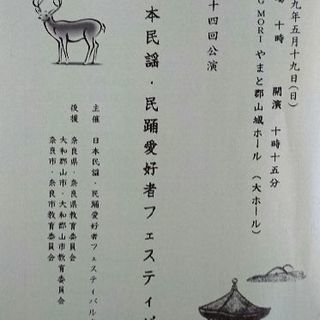 九年五月十九日(日)
場 十時 開演 十時十五分
G MORI やまと郡山城ホール (大ホール)
十四回公演
本民謡・民踊愛好者フェスティバ
主催 日本民謡・民踊愛好者フェスティバル
後援 奈良県・奈良県教育委員会
大和郡山市・大和郡山市教育委員会
奈良市・奈良市教育委員会